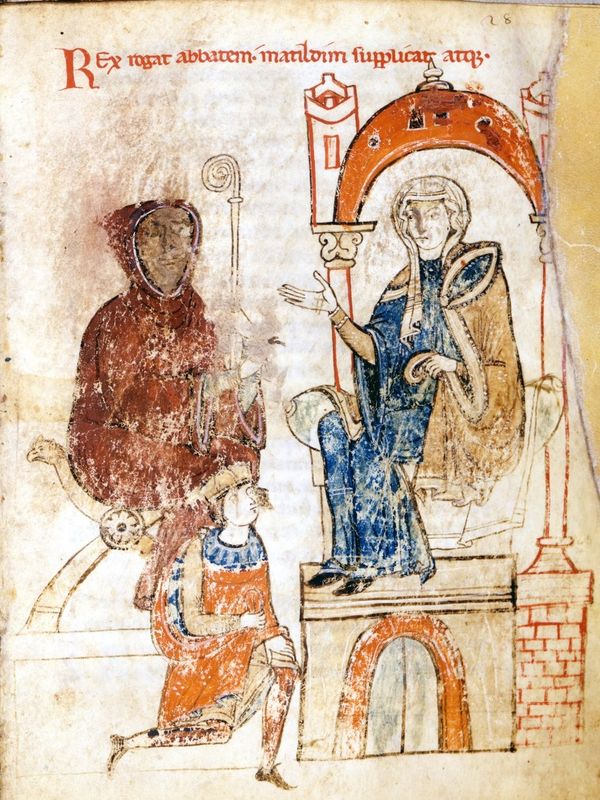 28
Rex rogat abbatem · matildim supplicat atqꝫ ·